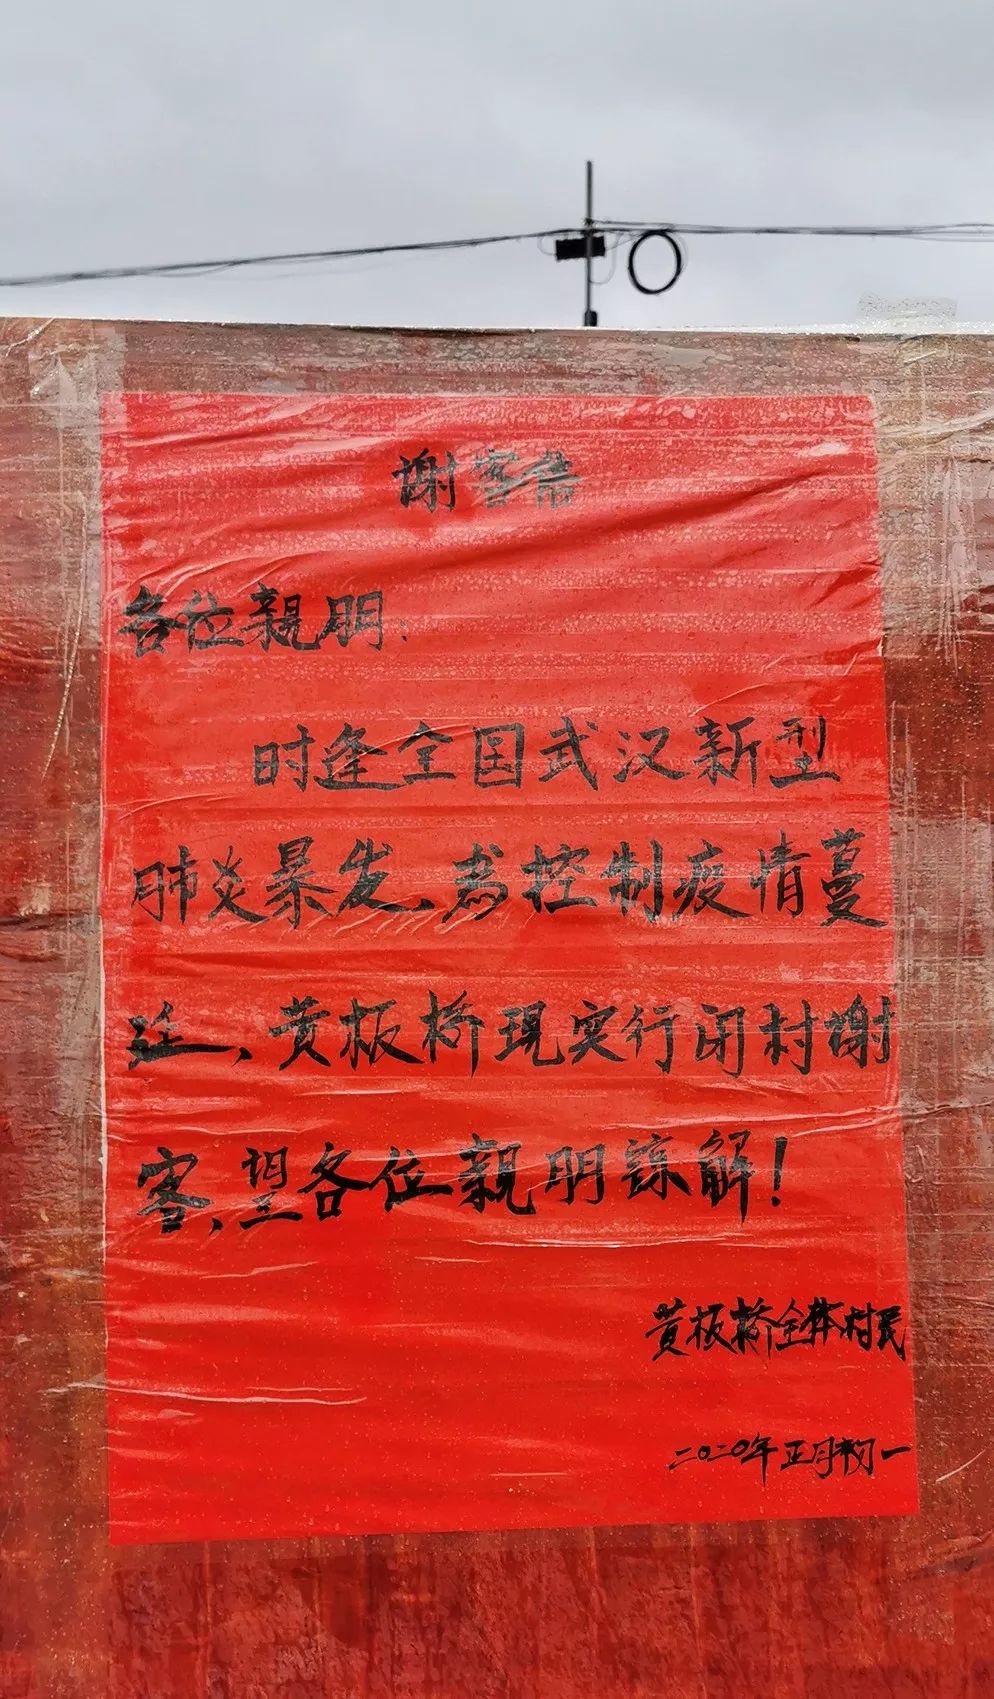 谢客告
各位親朋:
时逢全国武汉新型
肺炎暴发,为控制疫情蔓
延、黄板桥现实行闭村谢
客,望各位親朋諒解!
黄板桥全体村民
二〇二〇年正月初一